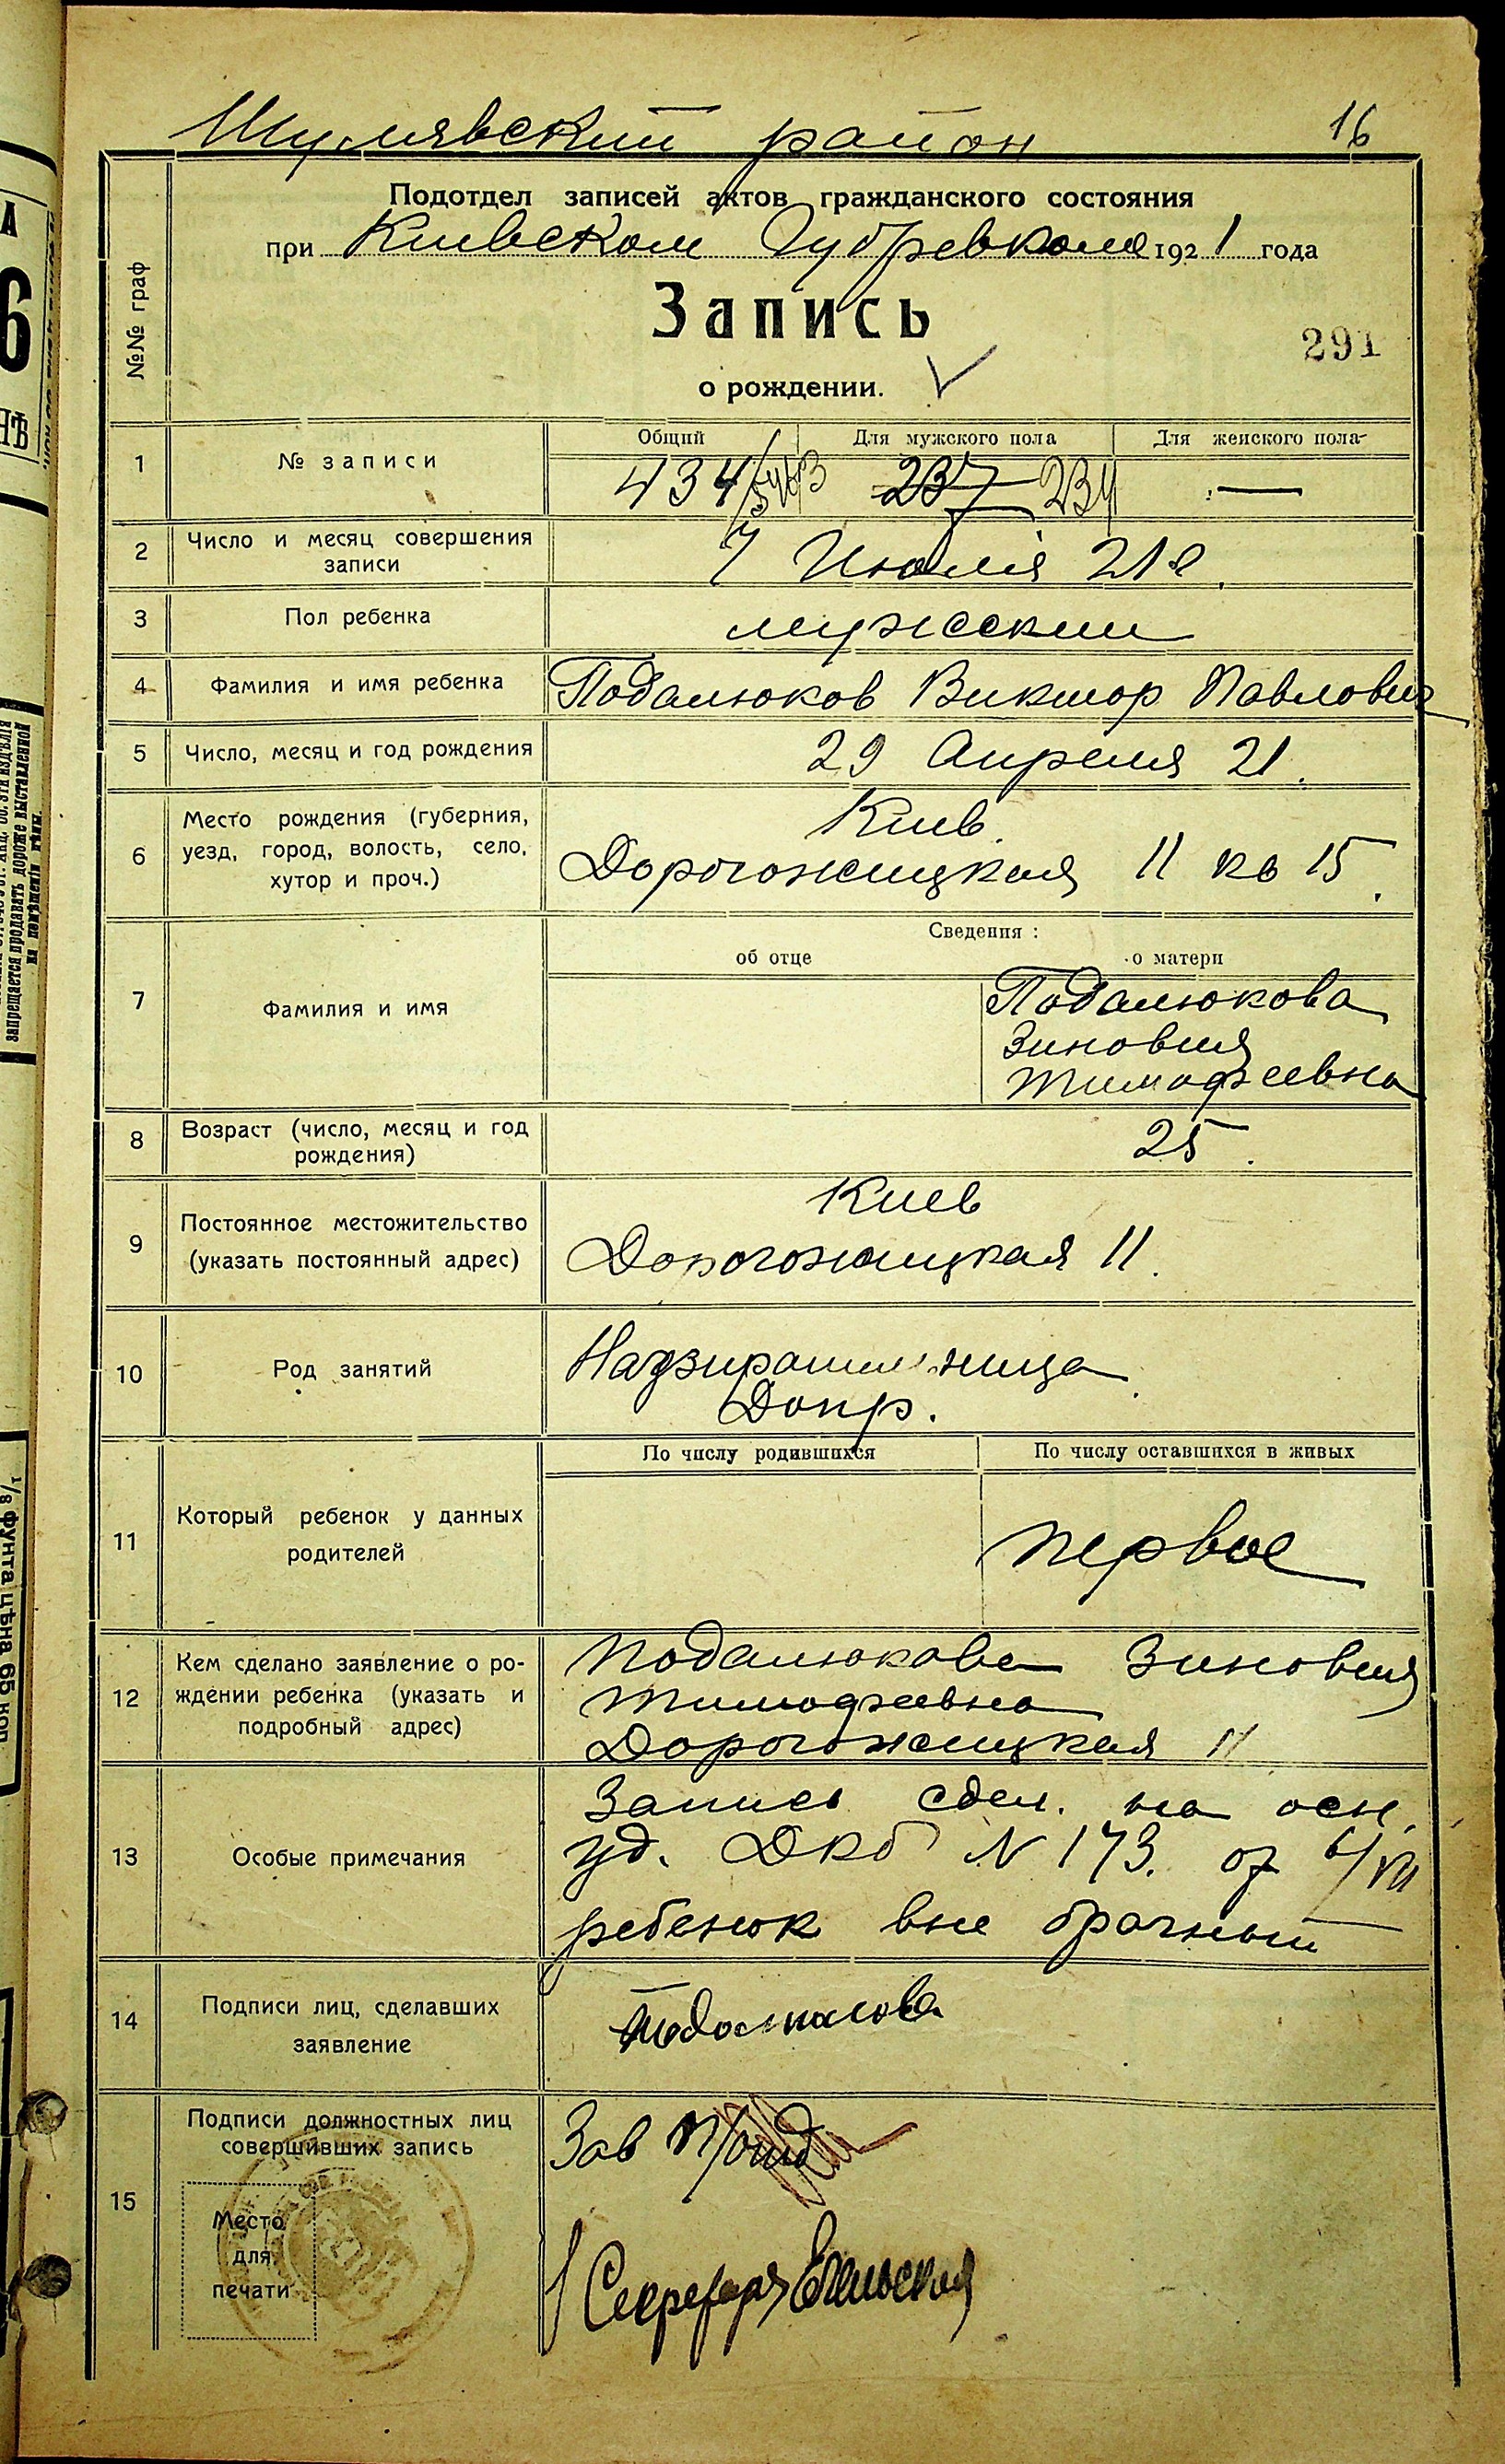 Шулявский район
16
Подотдел записей актов гражданского состояния
при Киевском Губревкоме 1921 года
№№ граф
Запись
о рождении.
291
1 № записи
Общий Для мужского пола Для женского пола
434 237 234 —
2 Число и месяц совершения
записи
7 Июля 21 г.
3 Пол ребенка мужским
4 Фамилия и имя ребенка Подалюков Виктор Павлович
5 Число, месяц и год рождения 29 Апреля 21.
6 Место рождения (губерния,
уезд, город, волость, село,
хутор и проч.)
Киев.
Дорогожицкая 11 кв 15.
Сведения:
об отце о матери
7 Фамилия и имя
Подалюкова
Зиновия
Тимофеевна
8 Возраст (число, месяц и год
рождения)
25.
9 Постоянное местожительство
(указать постоянный адрес)
Киев
Дорогожицкая 11.
10 Род занятий
Надзирательница
Допр.
По числу родившихся По числу оставшихся в живых
11 Который ребенок у данных
родителей
первое
12 Кем сделано заявление о ро-
ждении ребенка (указать и
подробный адрес)
Подалюкова Зиновия
Тимофеевна
Дорогожицкая 11
13 Особые примечания
Запись сдел. на осн.
уд. ДКб N 173. от 6/VII
ребенок вне брачный
14 Подписи лиц, сделавших
заявление
Подолюкова
15 Подписи должностных лиц
совершивших запись
Место
для
печати
Зав П/отд
Секретарь
запрещается продавать дороже выставленной
1/8 фунта цѣна 65 коп.